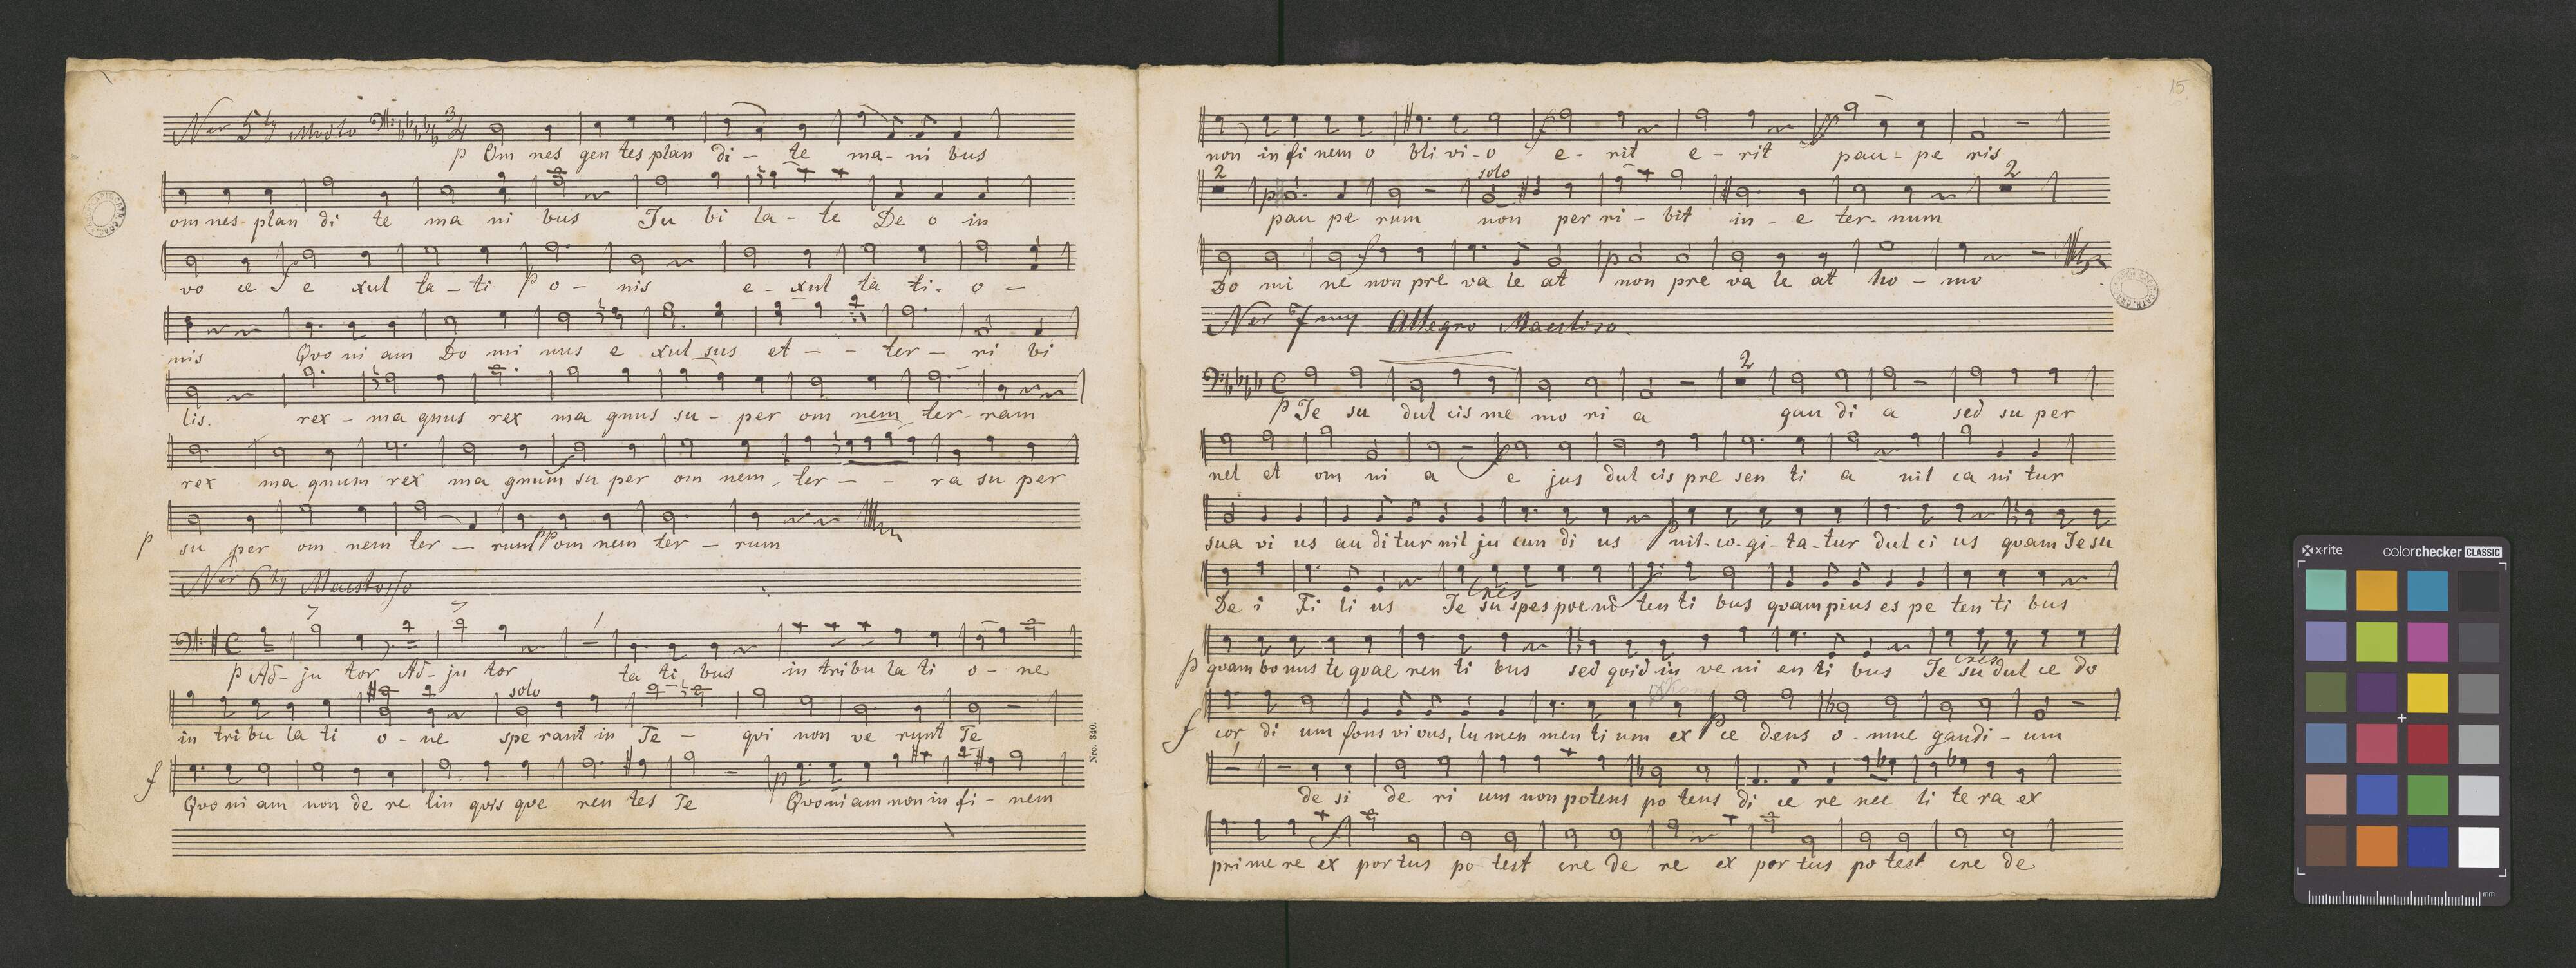 Nro 5ty Modto 3/4
p Om nes gen tes plan di - te ma - ni bus
om nes plan di te ma ni bus Ju bi la - te De o in
vo ce f e xul ta - ti p o - nis e - xul ta ti - o -
nis Qvo ni am Do mi nus e xul sus et - - ter - ri bi
lis. rex - ma gnus rex ma gnus su - per om nem ter - ram
rex ma gnum rex ma gnum su per om nem, ter - - ra su per
p su per om nem ter - rum pp om nem ter - rum
Nro 6ty Maestosso
C
p Ad - ju tor Ad - ju tor ta ti bus in tri bu la ti o - ne
solo
in tri bu la ti o - ne spe rant in Te - qvi non ve runt Te
f Qvo ni am non de re lin qvis qve ren tes Te p Qvo ni am non in fi - nem
Nro. 340.
15
non in fi nem o bli vi - o e - rit e - rit pau - pe ris
2 solo 2
p pau pe rum non per ri - bit in - e ter - num
Do mi ne non pre va le at non pre va le at ho - mo
Nro 7my Allegro Maestoso.
C 2
p Je su dul cis me mo ri a gau di a sed su per
nel et om ni a e jus dul cis pre sen ti a nil ca ni tur
sua vi us au di tur nil ju cun di us nil - co - gi - ta - tur dul ci us qvam Je su
De i Fi li us Je su spes poe ni ten ti bus qvam pius es pe ten ti bus
cres
p qvam bo nus te qvae ren ti bus sed qvid in ve ni en ti bus Je su dul ce do
cres
f cor di um fons vi vus, lu men men ti um ex ce dens o - mne gaudi - um
de si de ri um non potens po tens di ce re nec li te ra ex
pri me re ex por tus po test cre de re ex por tus po test cre de